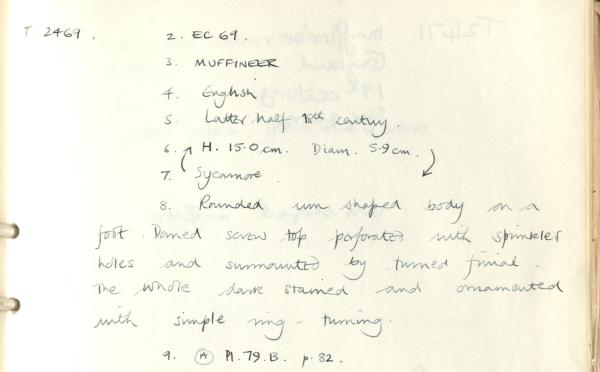 T. 2469.
2. EC 69.
3. MUFFINEER
4. English
5. Latter half 18th century.
6. H. 15.0 cm. Diam. 5.9 cm.
7. Sycamore.
8. Rounded urn shaped body on a
foot. Domed screw top perforated with sprinkler
holes and surmounted by turned finial.
The whole dark stained and ornamented
with simple ring-turning.
9. (A) Pl. 79. B. p. 82.